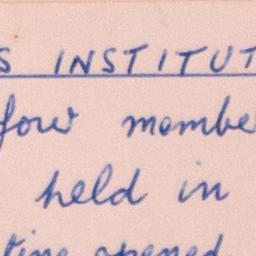 S INSTITUT
four membe
held in
ting opened